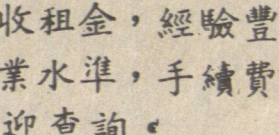 收租金，經驗豐
業水準，手續費
迎查詢。